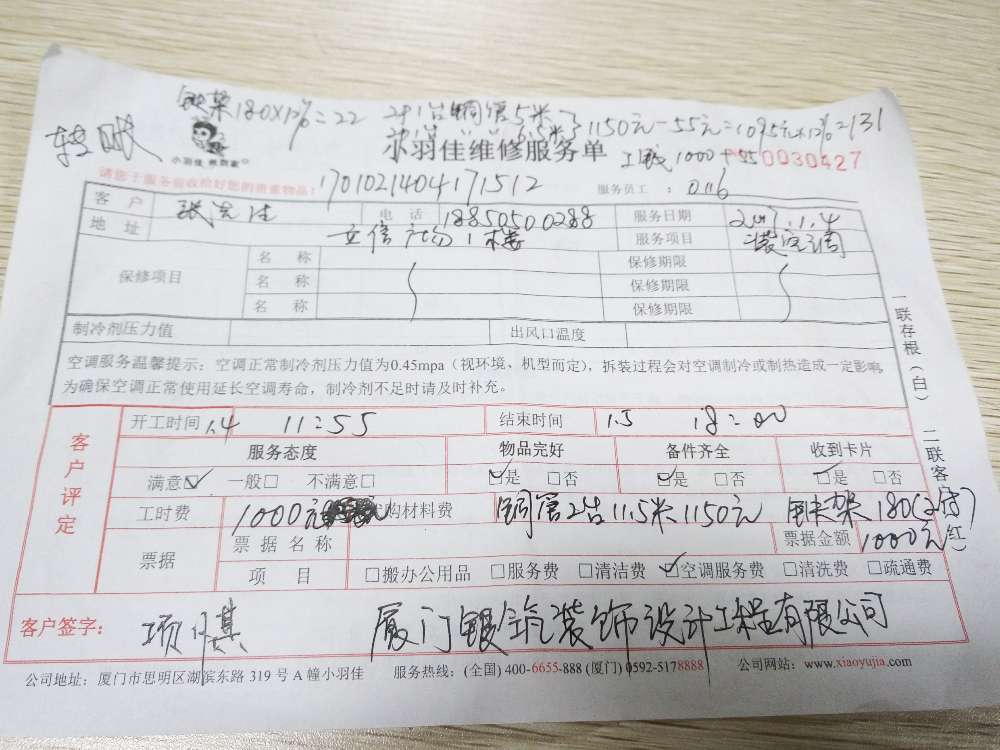 铁架180×12%=22 2匹1台铜管5米
1150元-55元=1095元×12%=131
转账
小羽佳维修服务单
工钱1000+55
0030427
小羽佳
请您于服务前收拾好您的贵重物品！
1701021404171512
服务员工： 0116
客户 张先生 电话 18850500288 服务日期 2017.1.4
地址 立信广场1楼 服务项目 装空调
保修项目 名称 保修期限
名称 保修期限
名称 保修期限
制冷剂压力值 出风口温度
空调服务温馨提示：空调正常制冷剂压力值为0.45mpa（视环境、机型而定），拆装过程会对空调制冷或制热造成一定影响，
为确保空调正常使用延长空调寿命，制冷剂不足时请及时补充。
一联存根（白） 二联客户（红）
客户评定
开工时间 1.4 11:55 结束时间 1.5 18:00
服务态度 物品完好 备件齐全 收到卡片
满意☑ 一般□ 不满意□ ☑是 □否 ☑是 □否 ☑是 □否
工时费 1000元 代购材料费 铜管2台11.5米1150元 铁架180(2付)
票据 票据名称 票据金额 1000元
项目 □搬办公用品 □服务费 □清洁费 ☑空调服务费 □清洗费 □疏通费
客户签字： 厦门银筑装饰设计工程有限公司
公司地址：厦门市思明区湖滨东路 319 号 A 幢小羽佳 服务热线：(全国) 400-6655-888 (厦门) 0592-5178888 公司网站：www.xiaoyujia.com